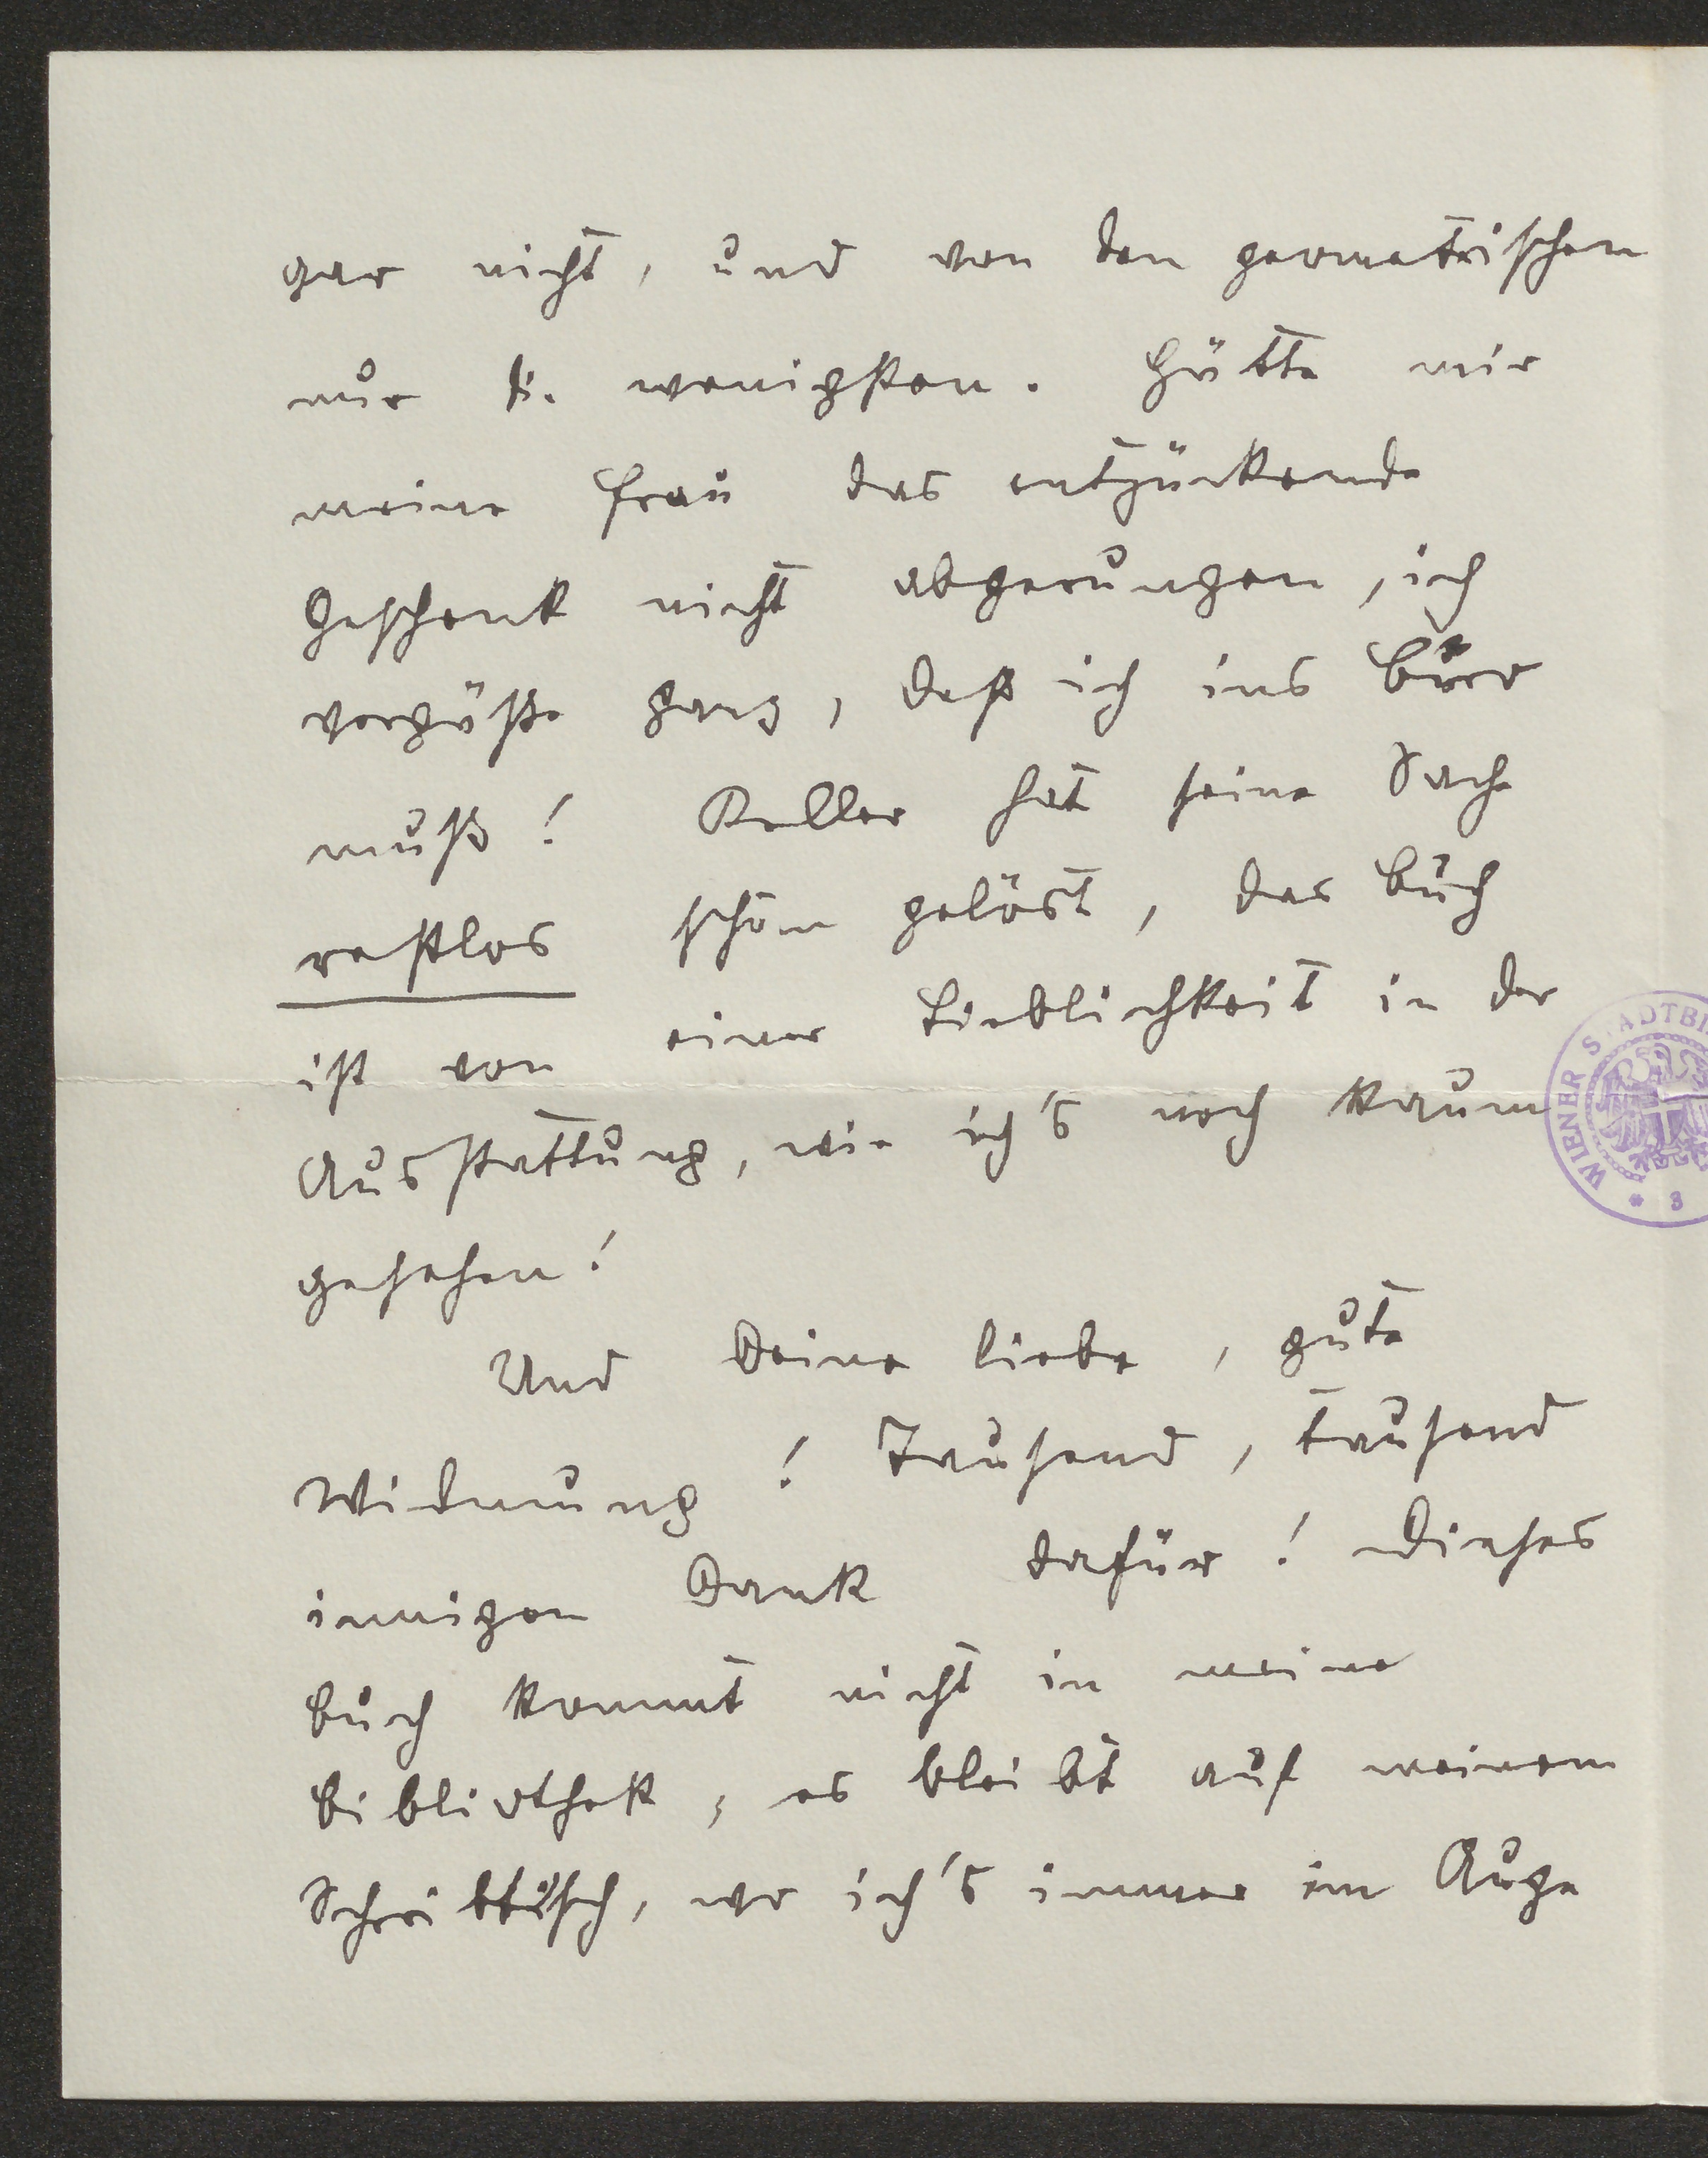 gar nicht, und von den geometrischen
nur d. wenigsten. Hätte mir
meine Frau das entzückende
Geschenk nicht abgerungen, ich
vergäße ganz, daß ich ins Büro
muß! Keller hat seine Sache
restlos schön gelöst, das Buch
ist von einer Lieblichkeit in der
Ausstattung, wie ich's noch kaum
gesehen!
Und Deine liebe, gute
Widmung! Tausend, tausend
innigen Dank dafür! Dieses
Buch kommt nicht in meine
Bibliothek, es bleibt auf meinem
Schreibtisch, wo ich's immer im Auge
WIENER STADTBI